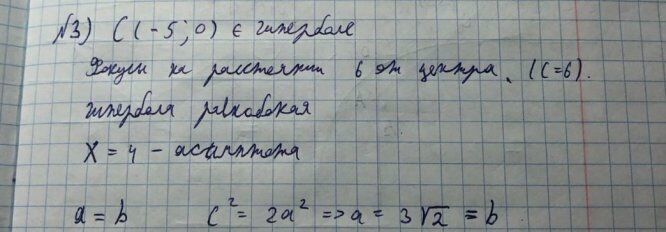 №3) C(-5;0) ∈ гиперболе
Фокусы на расстоянии 6 от центра. (c=6).
гипербола равнобокая
x = 4 - асимптота
a = b c² = 2a² => a = 3√2 = b